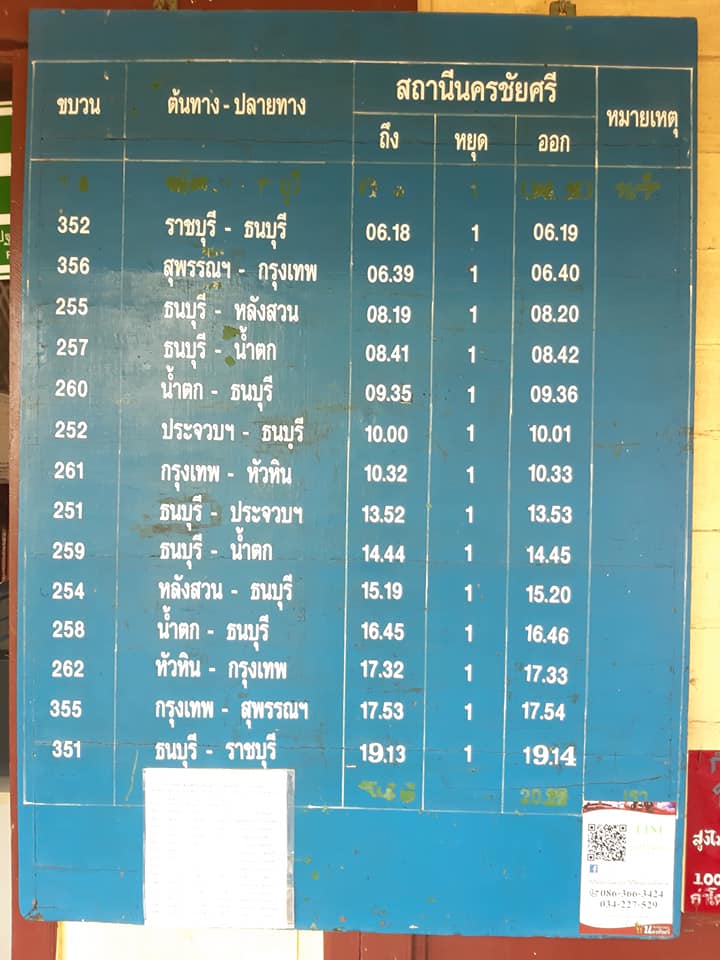 ขบวน ต้นทาง - ปลายทาง สถานีนครชัยศรี หมายเหตุ
ถึง หยุด ออก
352 ราชบุรี - ธนบุรี 06.18 1 06.19
356 สุพรรณฯ - กรุงเทพ 06.39 1 06.40
255 ธนบุรี - หลังสวน 08.19 1 08.20
257 ธนบุรี - น้ำตก 08.41 1 08.42
260 น้ำตก - ธนบุรี 09.35 1 09.36
252 ประจวบฯ - ธนบุรี 10.00 1 10.01
261 กรุงเทพ - หัวหิน 10.32 1 10.33
251 ธนบุรี - ประจวบฯ 13.52 1 13.53
259 ธนบุรี - น้ำตก 14.44 1 14.45
254 หลังสวน - ธนบุรี 15.19 1 15.20
258 น้ำตก - ธนบุรี 16.45 1 16.46
262 หัวหิน - กรุงเทพ 17.32 1 17.33
355 กรุงเทพ - สุพรรณฯ 17.53 1 17.54
351 ธนบุรี - ราชบุรี 19.13 1 19.14
LINE
086-366-3424
034-227-529
100